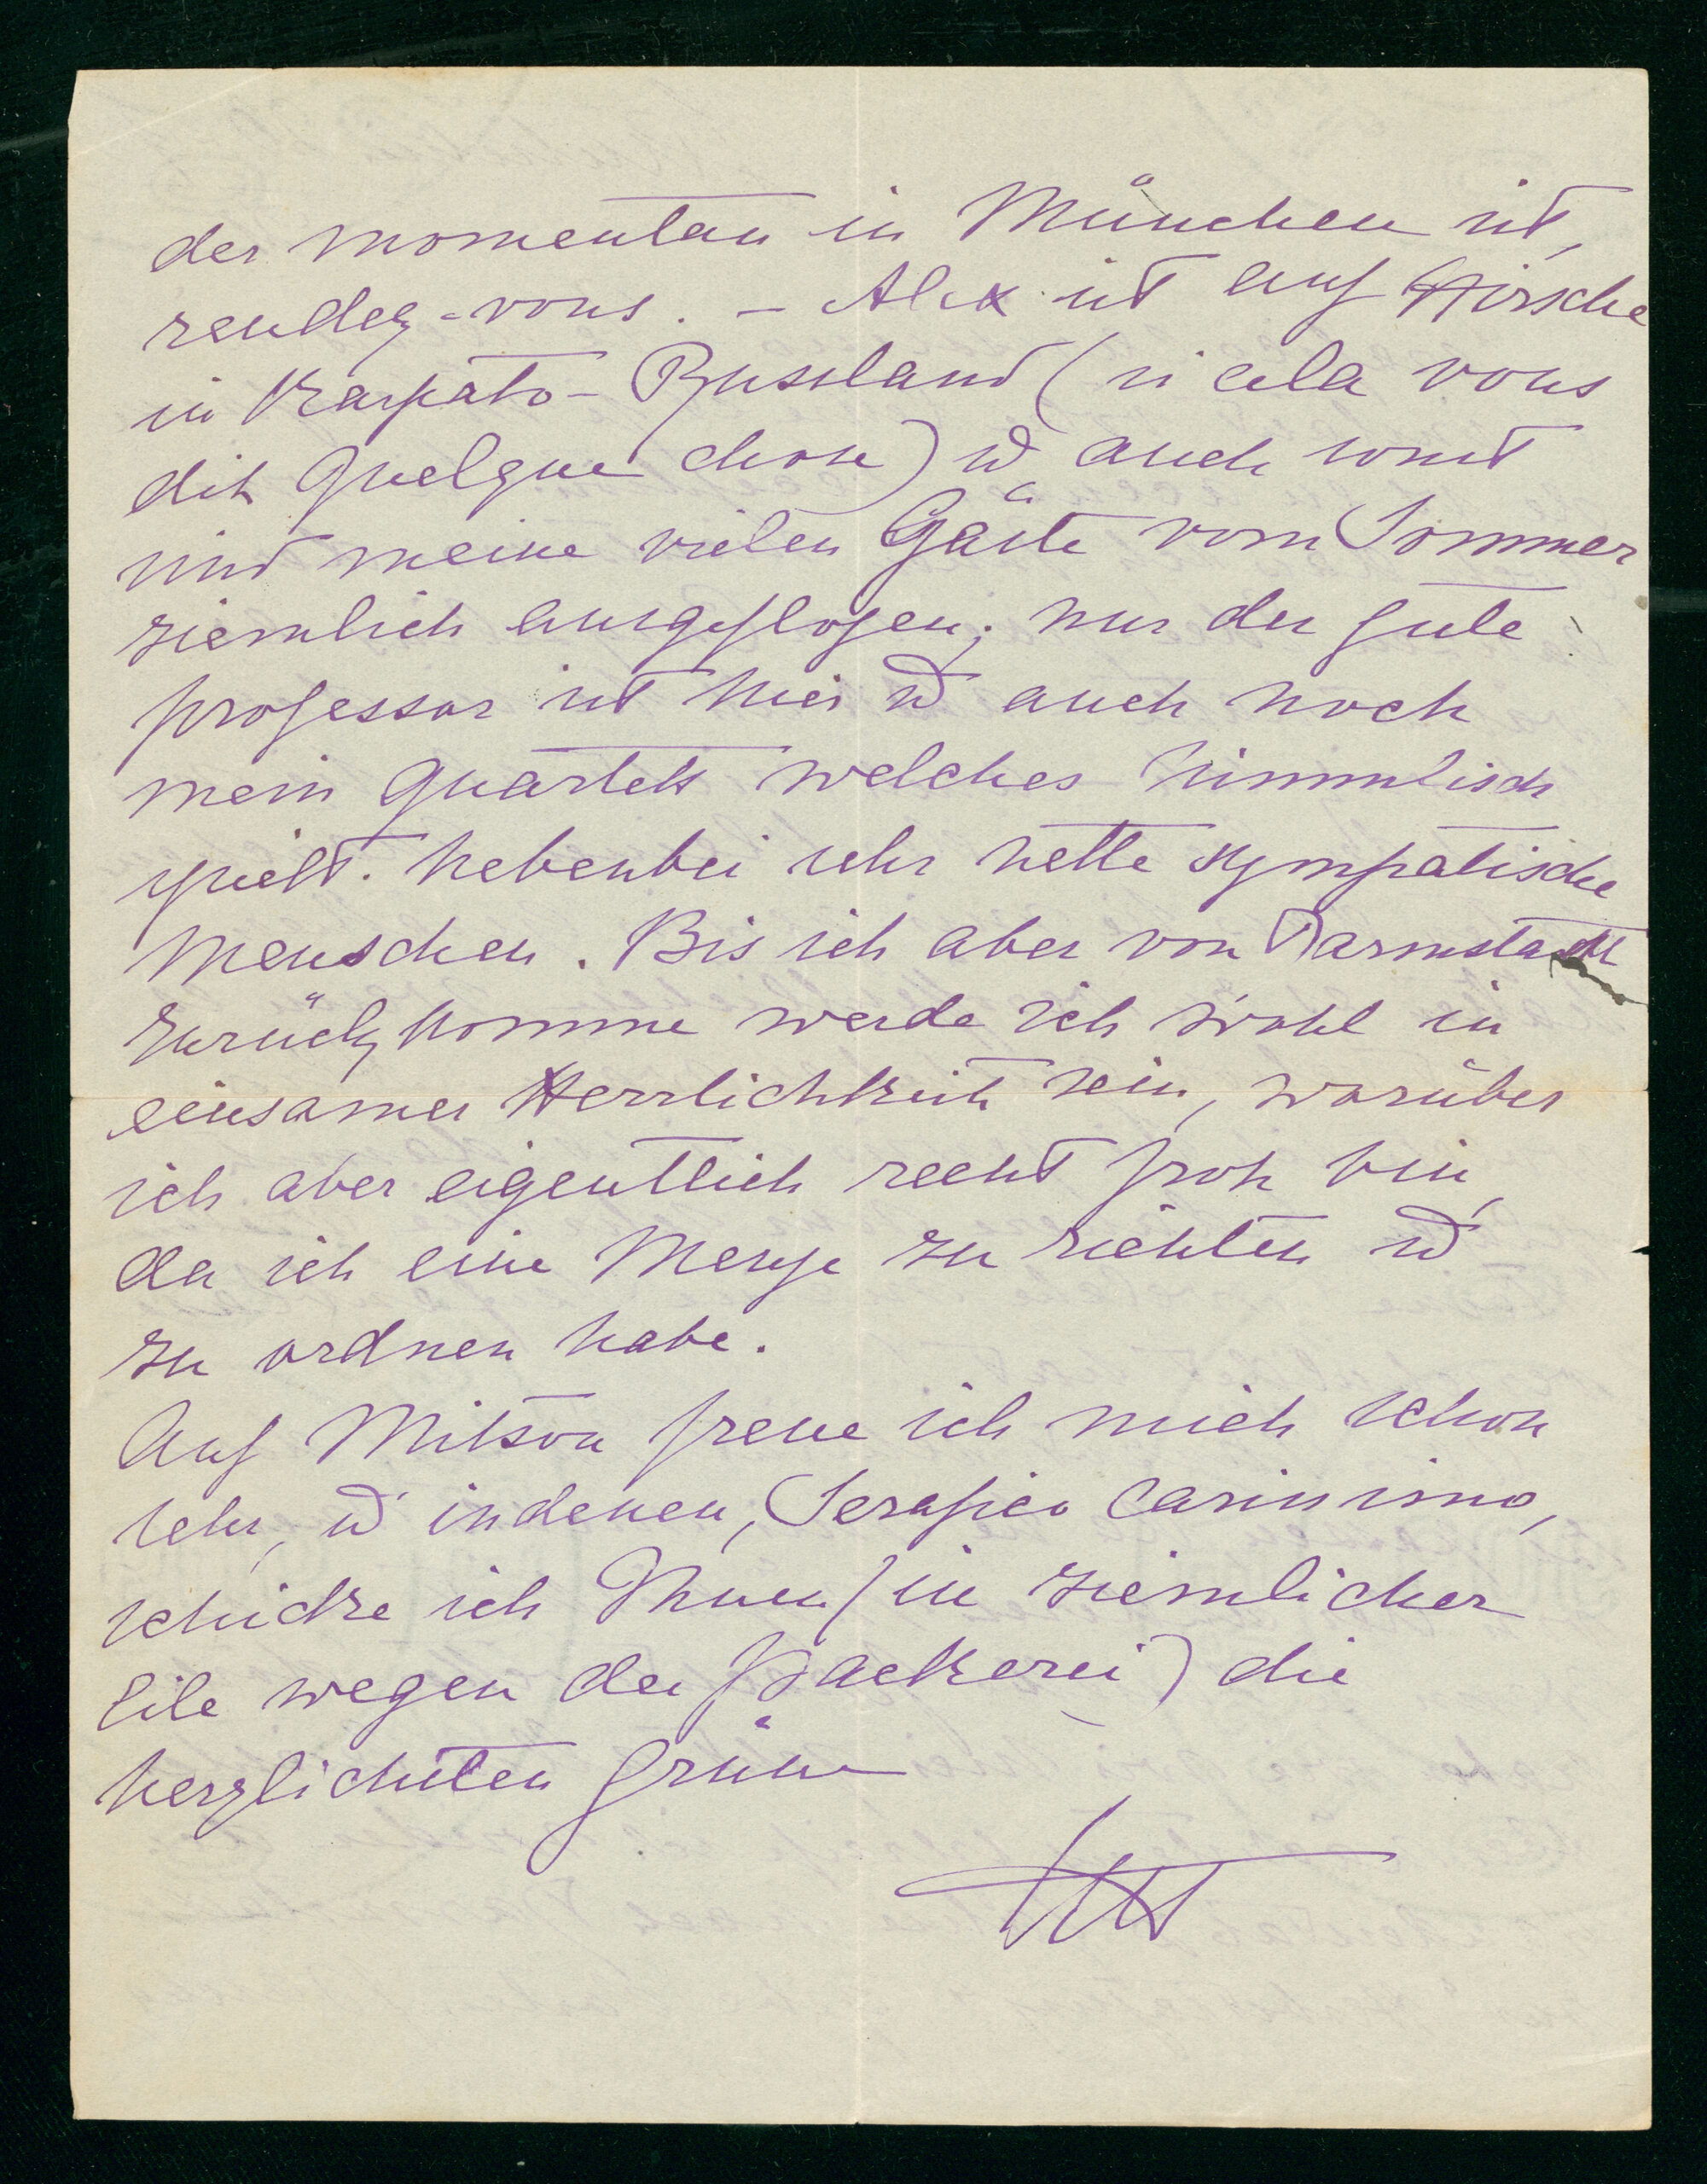 der momentan in München ist,
rendez-vous. – Alex ist auf Hirsche
in Karpato-Russland (si cela vous
dit quelque chose) u auch sonst
sind meine vielen Gäste vom Sommer
ziemlich ausgeflogen; nur der gute
professor ist hier u auch noch
mein Quartett welches himmlisch
spielt. Nebenbei sehr nette sympatische
Menschen. Bis ich aber von Darmstadt
zurück komme werde ich wohl in
einsamer Herrlichkeit sein, worüber
ich aber eigentlich recht froh bin,
da ich eine Menge zu richten u
zu ordnen habe.
Auf Mitsou freue ich mich schon
sehr, u indenen, Serafico carissimo,
schicke ich Ihnen (in ziemlicher
Eile wegen der packerei) die
herzlichsten Grüsse